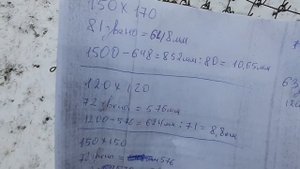 150×170
81 звено = 648мм
1500-648=852мм:80=10,65мм
120×120
72 звено = 576мм
1200-576=624мм:71=8,8мм
150×150
72 звено = 576
63